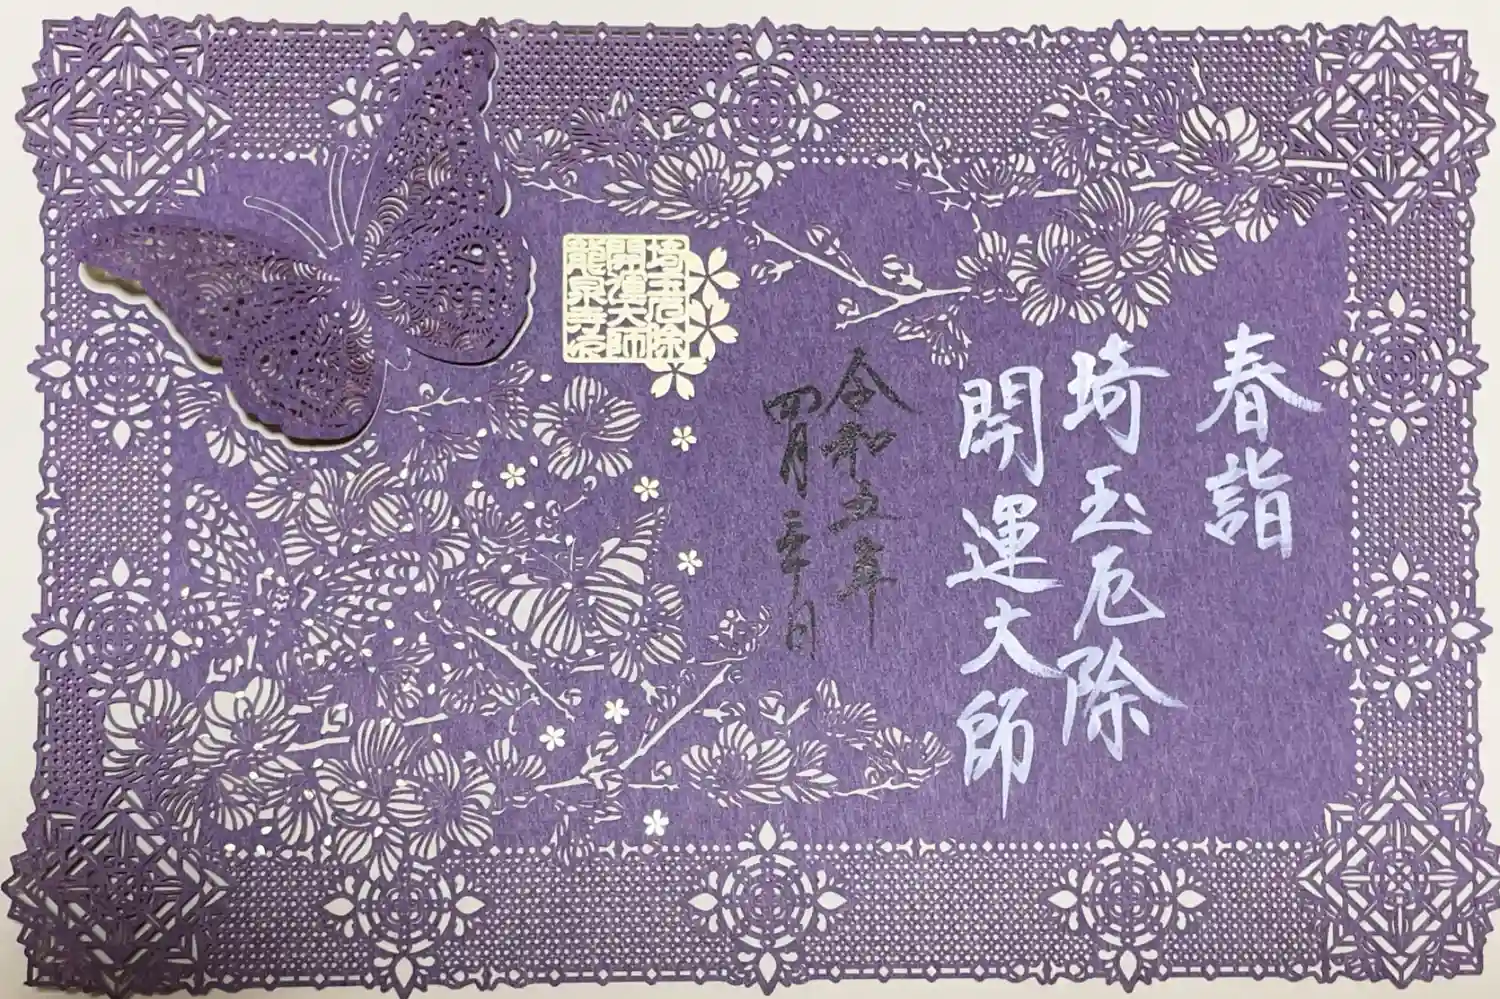 春詣
埼玉厄除
開運大師
令和五年
四月三十日
埼玉厄除
開運大師
龍泉寺印